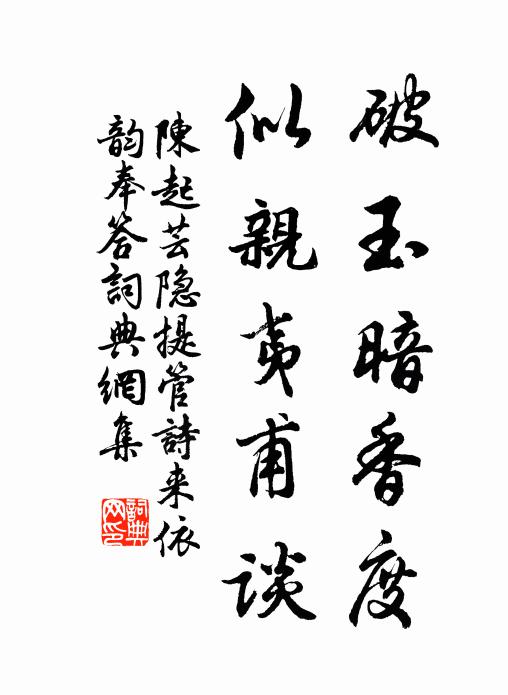 破玉暗香度
似親夷甫谈
陳起芸隐提管詩来依
韵奉答詞典網集
詞典网印